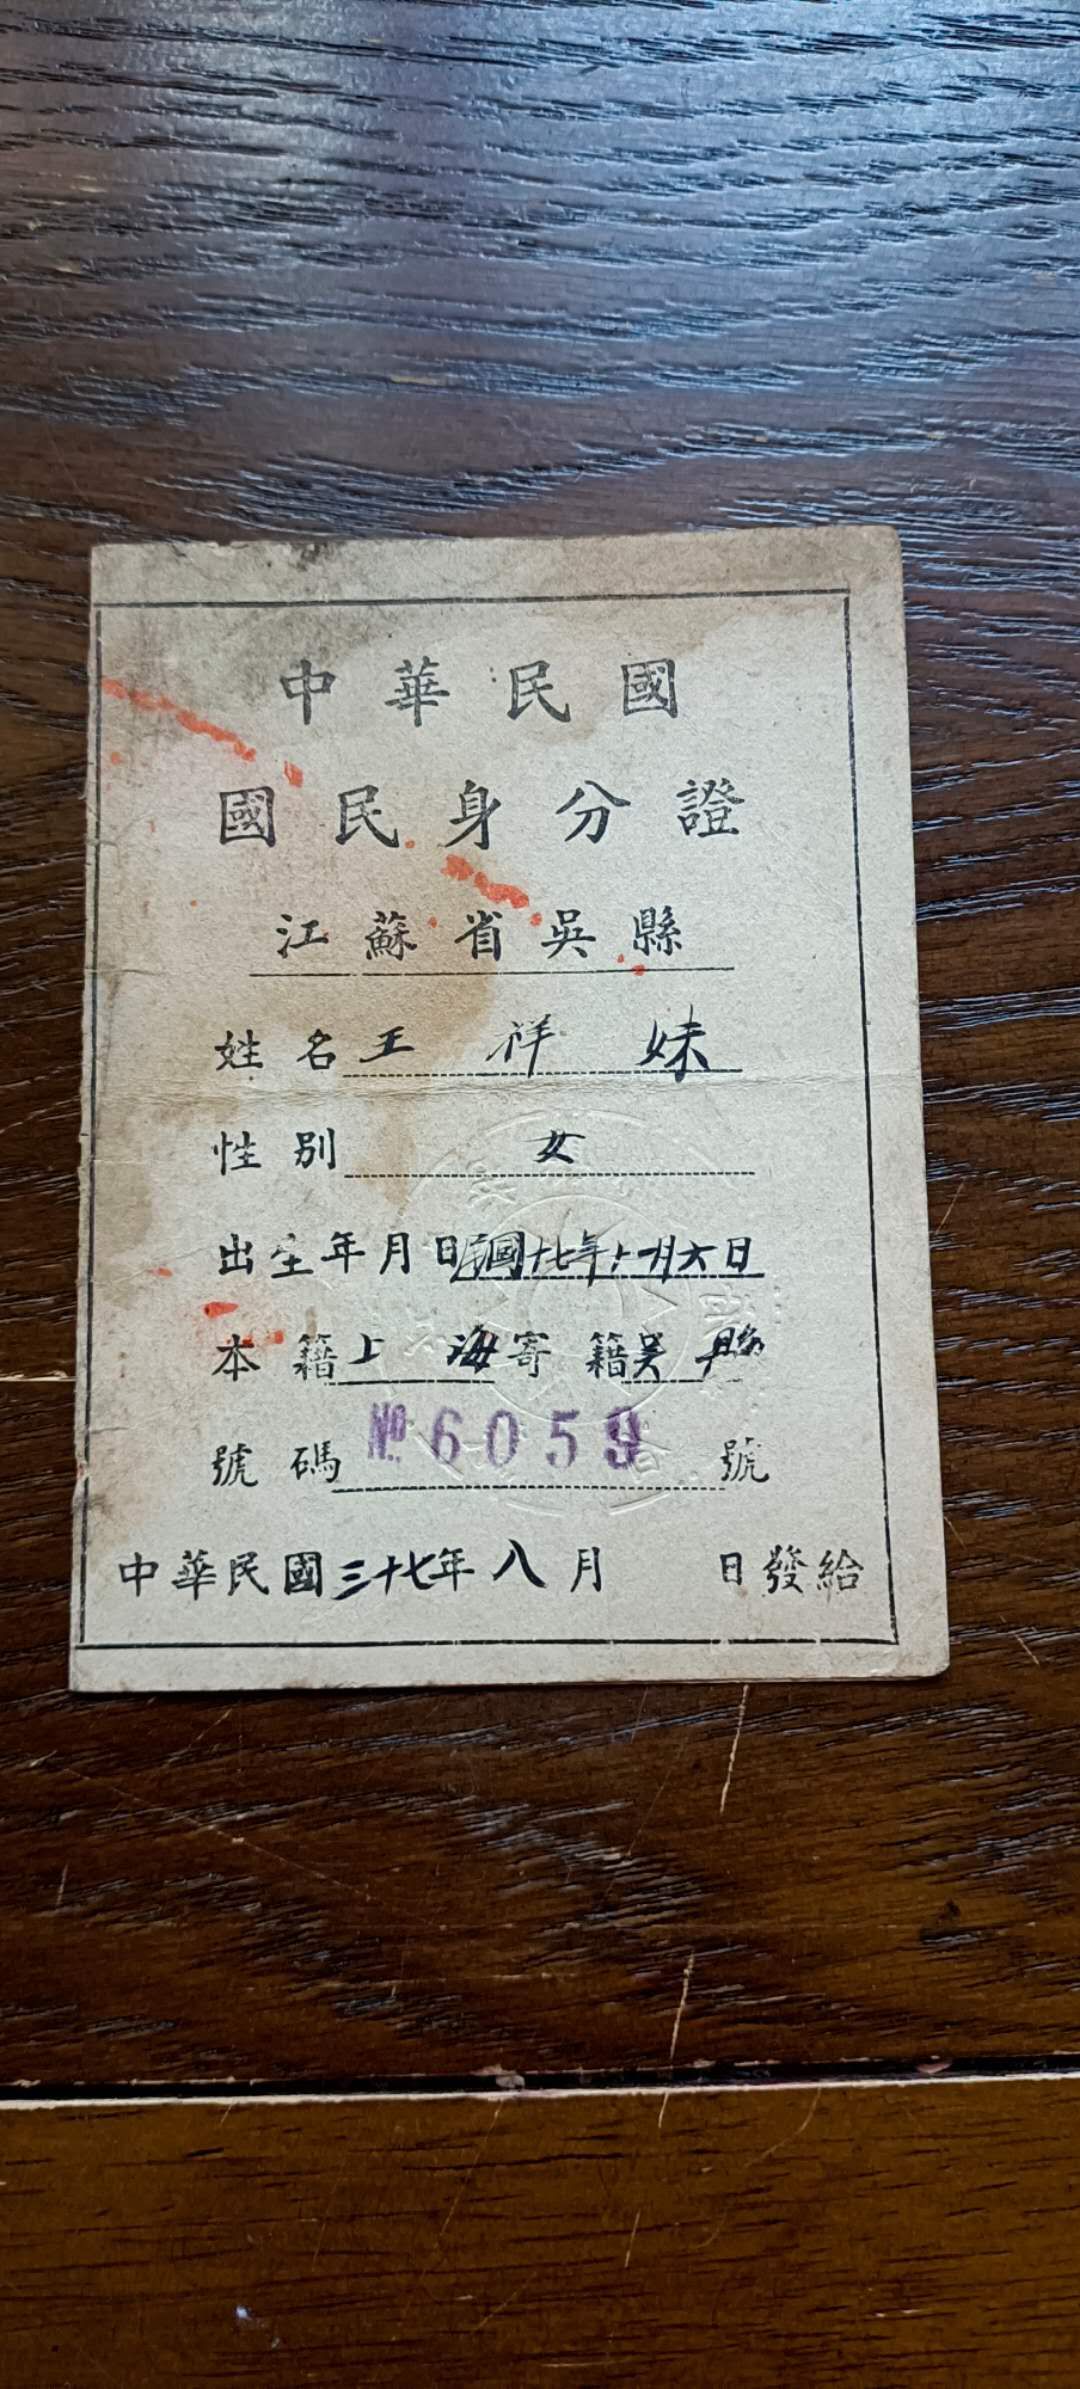 中華民國
國民身分證
江蘇省吳縣
姓名 王祥妹
性別 女
出生年月日 民國十七年十一月六日
本籍 上海 寄籍 吳縣
號碼 № 6059 號
中華民國三十七年八月 日發給